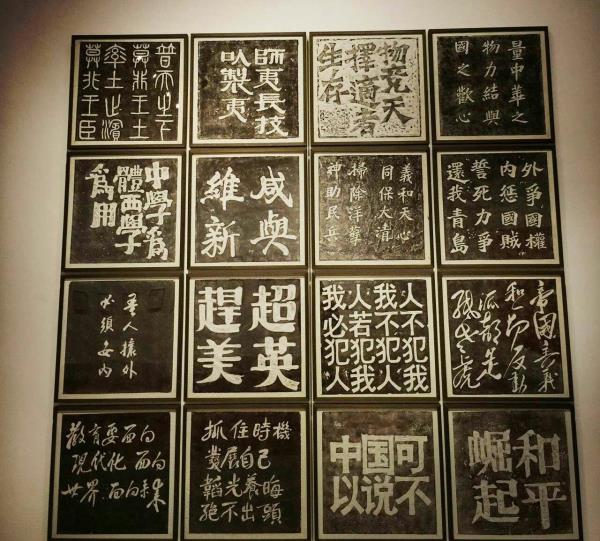 普天之下
莫非王土
率土之濱
莫非王臣
師夷長技
以製夷
物竞天
擇適者
生存
量中華之
物力結與
國之歡心
中學爲
體西學
爲用
咸與
維新
義和天心
同保大清
掃除洋孽
神助民兵
外爭國權
内惩國賊
誓死力爭
還我青島
吾人攘外
必須安内
超英
趕美
人不犯我
我不犯人
人若犯我
我必犯人
帝國主義
和一切反動
派都是
纸老虎
教育要面向
現代化 面向
世界 面向未来
抓住時機
發展自己
韜光養晦
絕不出頭
中国可
以说不
和平
崛起